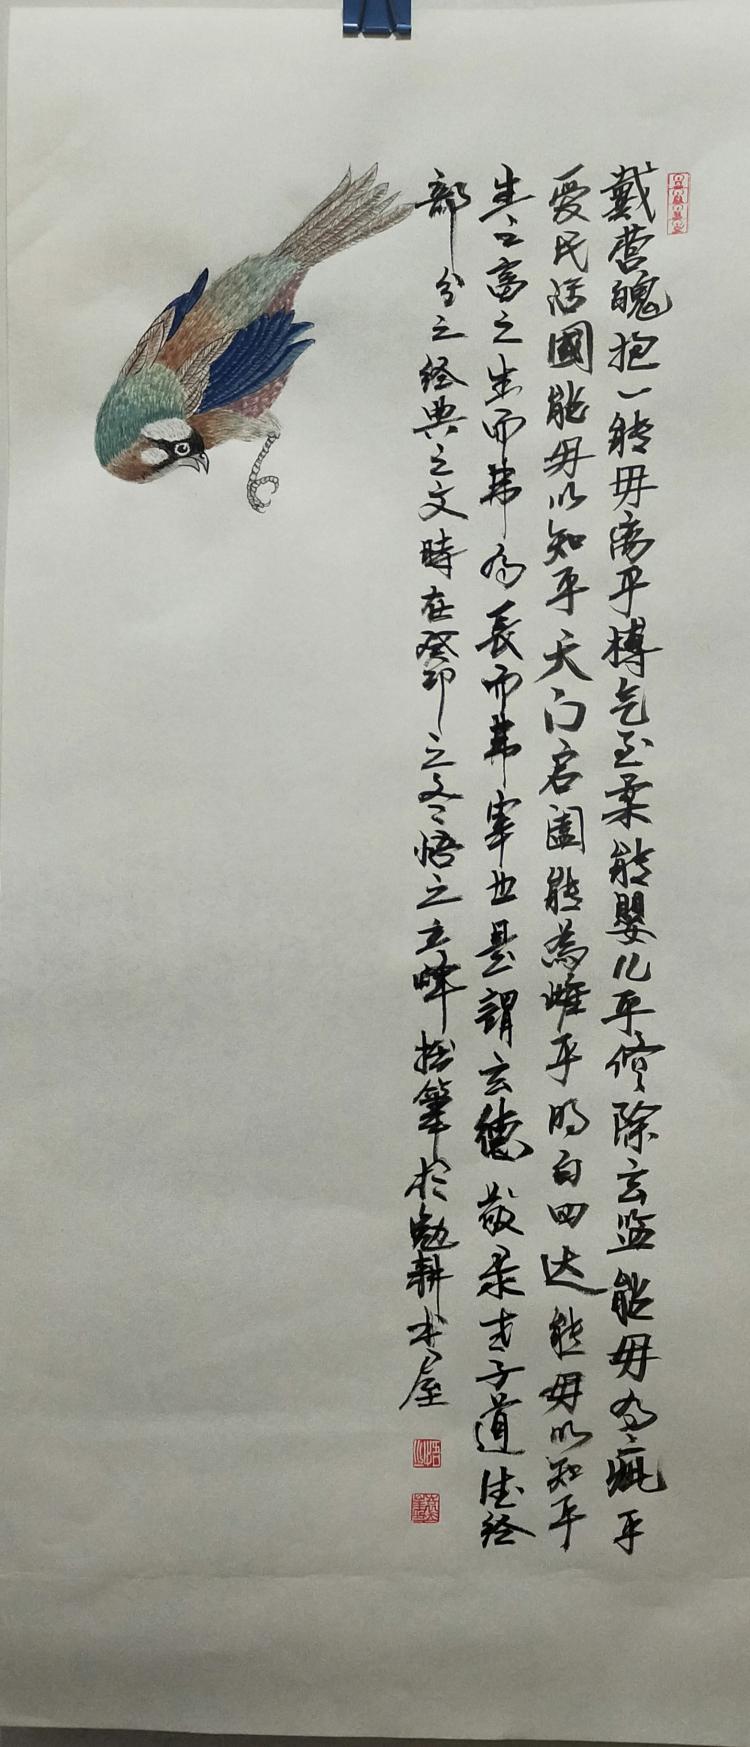 戴营魄抱一能毋离乎槫气至柔能婴儿乎修除玄监能毋为疵乎
爱民活國能毋以知乎天门启阖能為雌乎明白四达能毋以知乎
生之畜之生而弗为長而弗宰也是謂玄德敬录老子道德经
部分之经典之文時在癸卯之冬悟之立峰拙筆於勉耕书屋
悟之